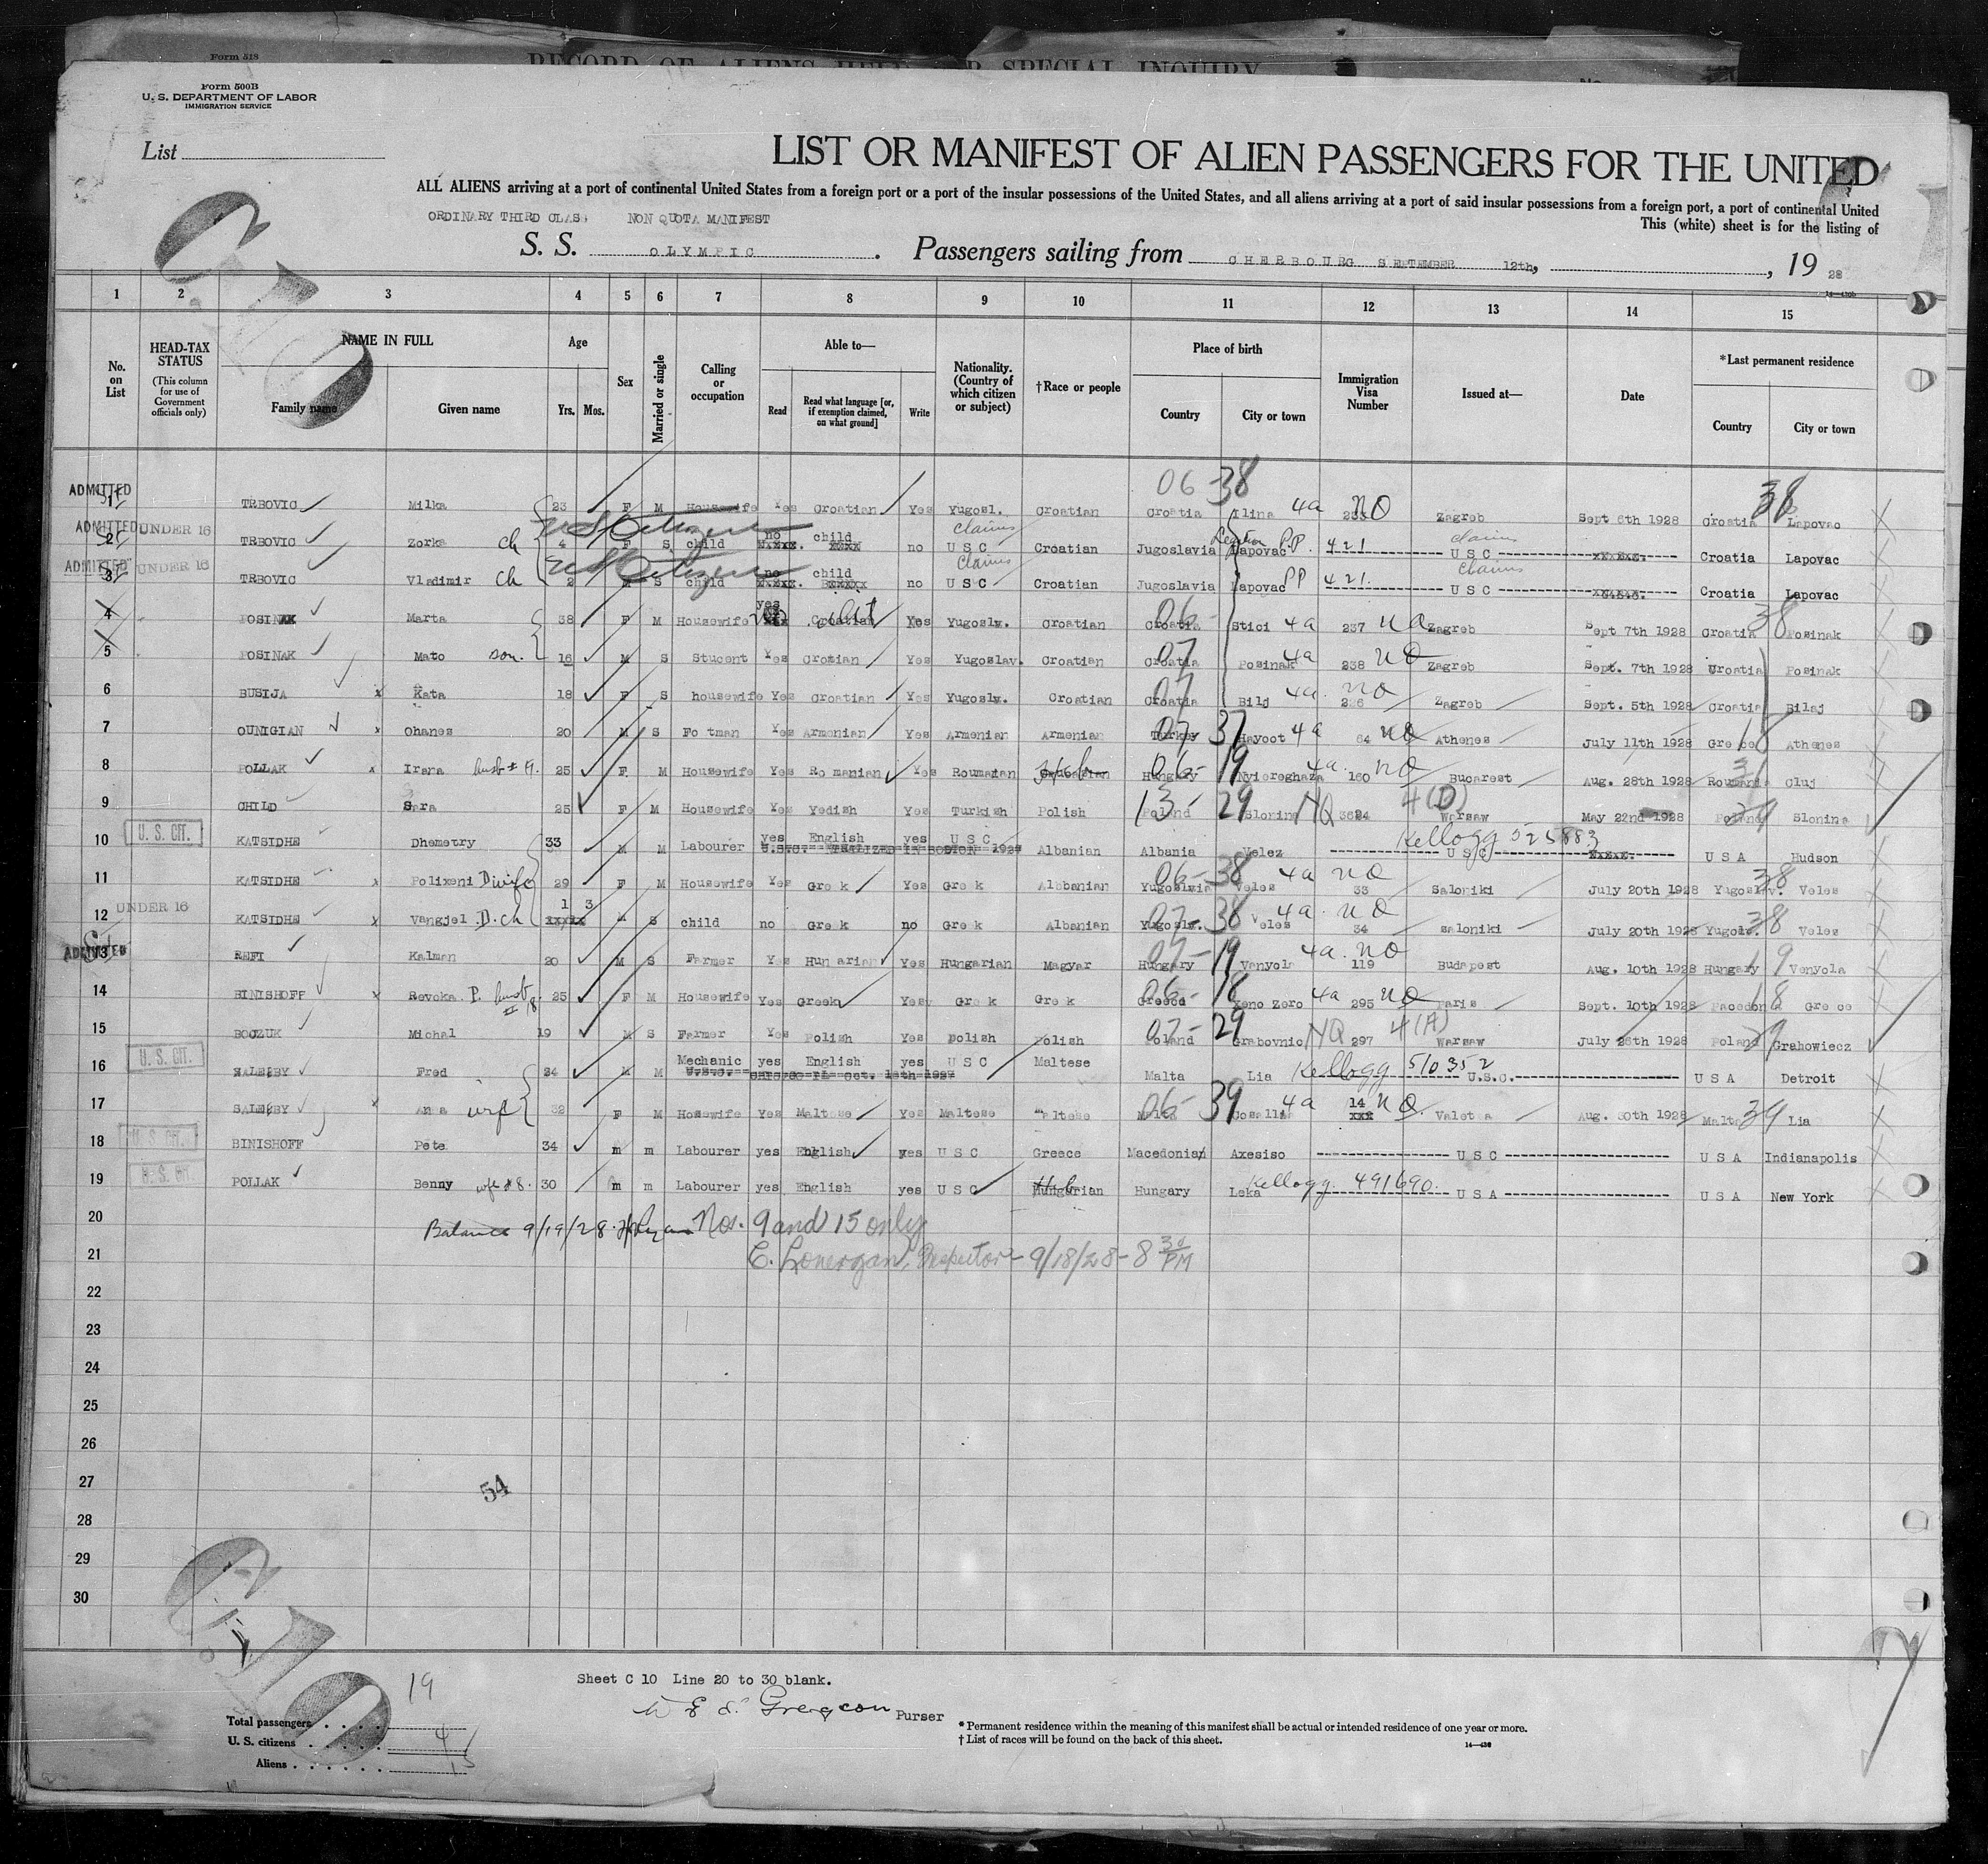 Form 518
RECORD OF ALIENS HELD FOR SPECIAL INQUIRY
Form 500B
U. S. DEPARTMENT OF LABOR
IMMIGRATION SERVICE
List
LIST OR MANIFEST OF ALIEN PASSENGERS FOR THE UNITED
ALL ALIENS arriving at a port of continental United States from a foreign port or a port of the insular possessions of the United States, and all aliens arriving at a port of said insular possessions from a foreign port, a port of continental United
ORDINARY THIRD CLASS NON QUOTA MANIFEST
This (white) sheet is for the listing of
S. S. OLYMPIC. Passengers sailing from CHERBOURG SEPTEMBER 12th, , 19 28
C 10
1 2 3 4 5 6 7 8 9 10 11 12 13 14 15
No. on List
HEAD-TAX STATUS
(This column for use of Government officials only)
NAME IN FULL
Family name Given name
Age
Yrs. Mos.
Sex
Married or single
Calling or occupation
Able to—
Read
Read what language [or, if exemption claimed, on what ground]
Write
Nationality. (Country of which citizen or subject)
†Race or people
Place of birth
Country City or town
Immigration Visa Number
Issued at—
Date
*Last permanent residence
Country City or town
06 38 38
ADMITTED 1 TRBOVIC Milka 23 F M Housewife Yes Croatian Yes Yugosl. Croatian Croatia Ilina 4a NQ Zagreb Sept 6th 1928 Croatia Lapovac
ADMITTED 2 UNDER 16 TRBOVIC Zorka ch 4 US Citizen F S child no child no claims U S C Croatian Jugoslavia Lapovac P.P. 421 claims U S C Croatia Lapovac
ADMITTED 3 UNDER 16 TRBOVIC Vladimir ch 2 US Citizen M S child no child no claims U S C Croatian Jugoslavia Lapovac PP 421. claims U S C Croatia Lapovac
4 POSINAK Marta 38 F M Housewife yes Croatian Yes Yugoslv. Croatian Croatia 06 Stici 4a 237 NQ Zagreb Sept 7th 1928 Croatia 38 Posinak
5 POSINAK Mato son. 16 M S Student Yes Croatian Yes Yugoslav. Croatian Croatia 07 Posinak 4a 238 NQ Zagreb Sept. 7th 1928 Croatia Posinak
6 BUSIJA x Kata 18 F S housewife Yes Croatian Yes Yugoslv. Croatian Croatia 07 Bilj 4a NQ Zagreb Sept. 5th 1928 Croatia Bilaj
7 OUNIGIAN x Ohanes 20 M S Footman Yes Armenian Yes Armenian Armenian Turkey 07 37 Hayoot 4a 64 NQ Athenes July 11th 1928 Greece 18 Athenes
8 POLLAK x Irena 25 F M Housewife Yes Romanian Yes Roumanian Heb Hungary 06- 19 Nyiereghaza 4a 160 NQ Bucarest Aug. 28th 1928 Roumania 31 Cluj
9 CHILD Sara 25 F M Housewife Yes Yedish Yes Turkish Polish 13- 29 Poland Slonina NQ 3624 4(D) Warsaw May 22nd 1928 Poland 29 Slonina
10 U. S. CIT. KATSIDHE Dhemetry 33 M M Labourer yes English yes U S C Albanian Albania Velez Kellogg 525883 U S C U S A Hudson
11 KATSIDHE x Polixeni D wife 29 F M Housewife Yes Greek Yes Greek Albanian Yugoslvia 06- 38 Veles 4a NQ 33 Saloniki July 20th 1928 Yugoslav. 38 Veles
12 UNDER 16 KATSIDHE x Vangjel D. ch 1 3 S child no Greek no Greek Albanian Yugoslv. 07- 38 Veles 4a NQ 34 Saloniki July 20th 1928 Yugosl. 38 Veles
ADMITTED 13 REFI Kalman 20 M S Farmer Yes Hungarian Yes Hungarian Magyar Hungary 07- 19 Vanyola 4a NQ 119 Budapest Aug. 10th 1928 Hungary 19 Venyola
14 BINISHOFF x Revoka P. husb 18 25 F M Housewife Yes Greek Yes Greek Greek Greece 06- 18 Xeno Zero 4a 295 NQ Paris Sept. 10th 1928 Greece
15 BOCZUK Michal 19 M S Farmer Yes Polish Yes Polish Polish Poland 07- 29 Grabovnic NQ 297 4(A) Warsaw July 26th 1928 Poland 29 Grahowiecz
16 U. S. CIT. SALERBY Fred 34 M M Mechanic yes English yes U S C Maltese Malta Lia Kellogg 510352 U.S.C. U S A Detroit
17 SALERBY x Anna wife 32 F M Housewife Yes Maltese Yes Maltese Maltese Malta 06- 39 Gosallia 4a 14 NQ Valetta Aug. 30th 1928 Malta 39 Lia
18 U. S. CIT. BINISHOFF Pete 34 m m Labourer yes English yes U S C Greece Macedonian Axesiso U S C U S A Indianapolis
19 U. S. CIT POLLAK Benny wife #8. 30 m m Labourer yes English yes U S C Heb Hungary Leka Kellogg. 491690. U S A U S A New York
20 Balance 9/19/28 Nos. 9 and 15 only
21 C. Lonergan, Inspector - 9/18/28 - 8 30 PM
22
23
24
25
26
27
54
28
29
30
C 10
19
Sheet C 10 Line 20 to 30 blank.
Purser
Total passengers
U. S. citizens 4
Aliens 15
* Permanent residence within the meaning of this manifest shall be actual or intended residence of one year or more.
† List of races will be found on the back of this sheet.